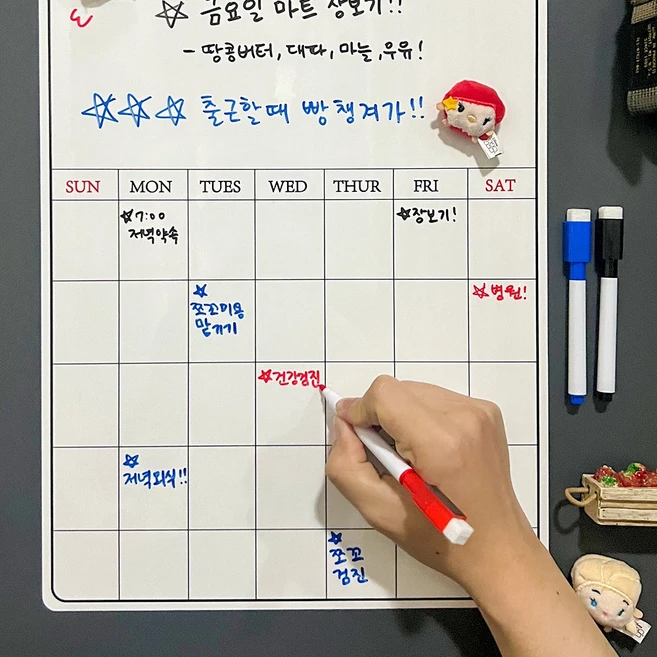 ☆ 금요일 마트 장보기!!
- 땅콩버터, 대파, 마늘, 우유!
☆☆☆ 출근할때 빵챙겨가!!
SUN MON TUES WED THUR FRI SAT
☆7:00
저녁약속
☆장보기!
☆
쪼꼬미용
맡기기
☆병원!
☆건강검진
☆
저녁외식!!
☆
쪼꼬
검진